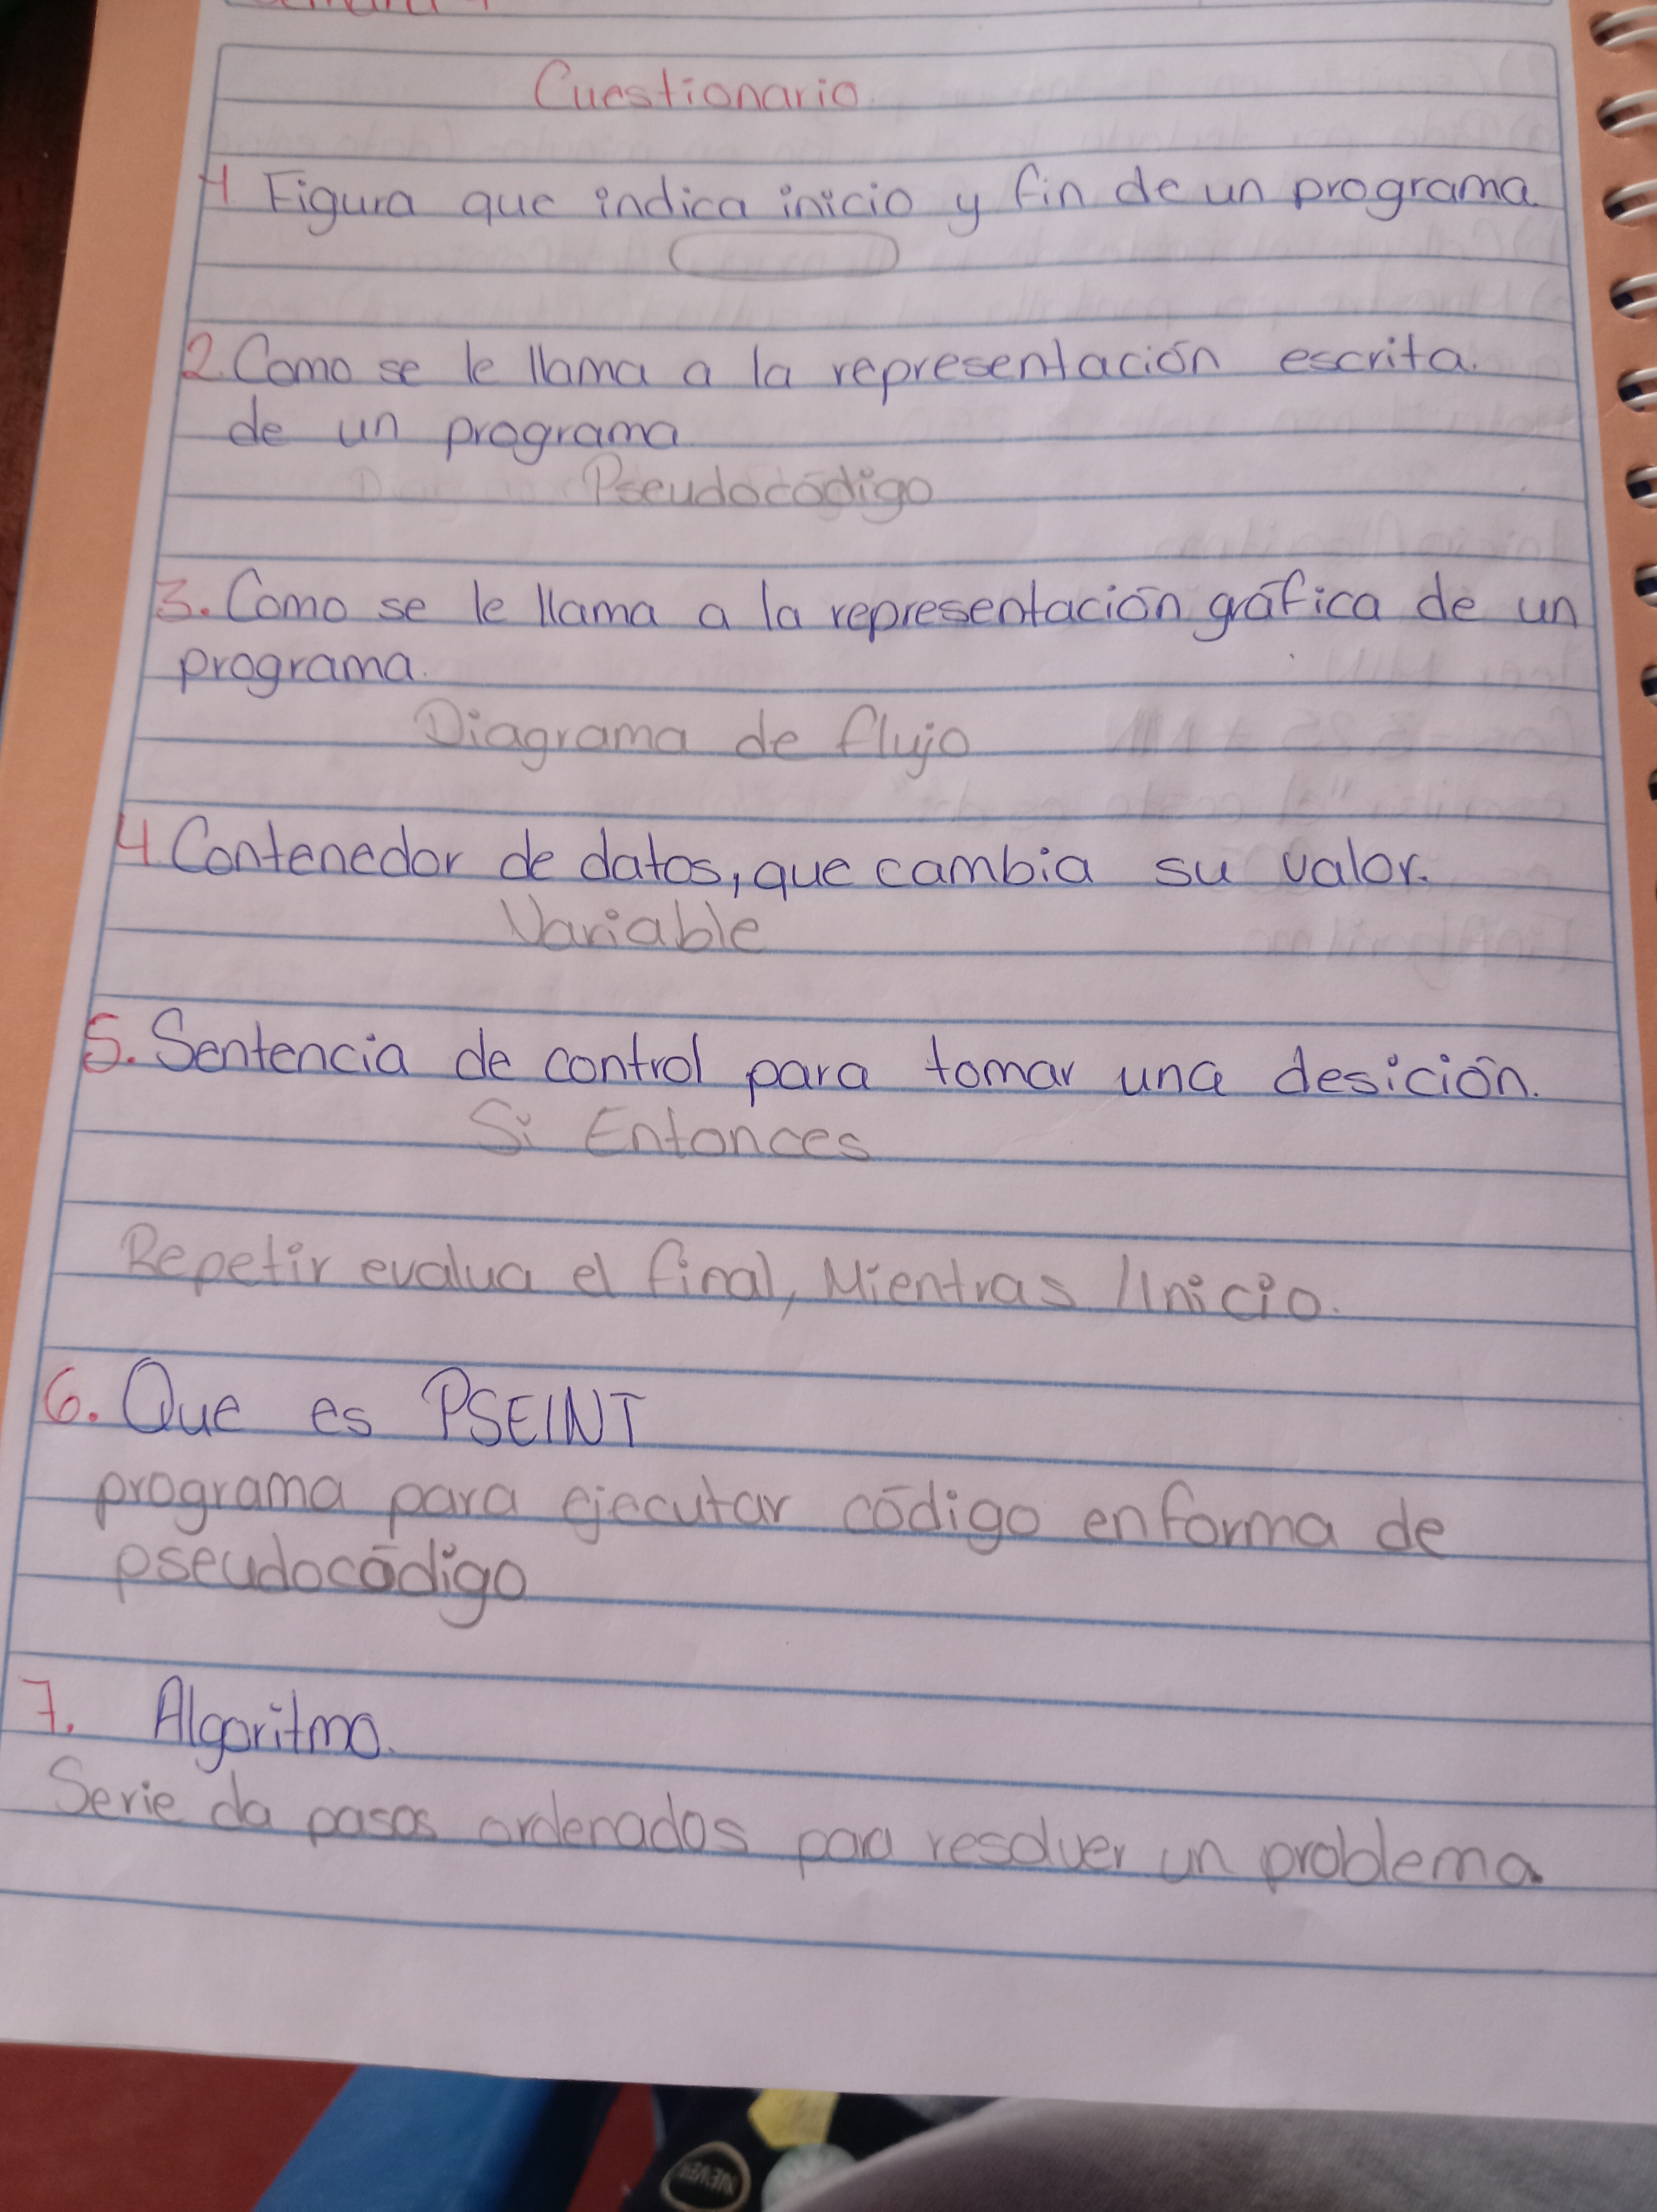 Cuestionario.
1. Figura que indica inicio y fin de un programa.
2. Como se le llama a la representación escrita.
de un programa
Pseudocódigo
3. Como se le llama a la representación gráfica de un
programa.
Diagrama de flujo
4. Contenedor de datos, que cambia su valor.
Variable
5. Sentencia de control para tomar una desición.
Si Entonces
Repetir evalua el final, Mientras /Inicio.
6. Que es PSEINT
programa para ejecutar código en forma de
pseudocódigo
7. Algoritmo.
Serie da pasos ordenados para resolver un problema